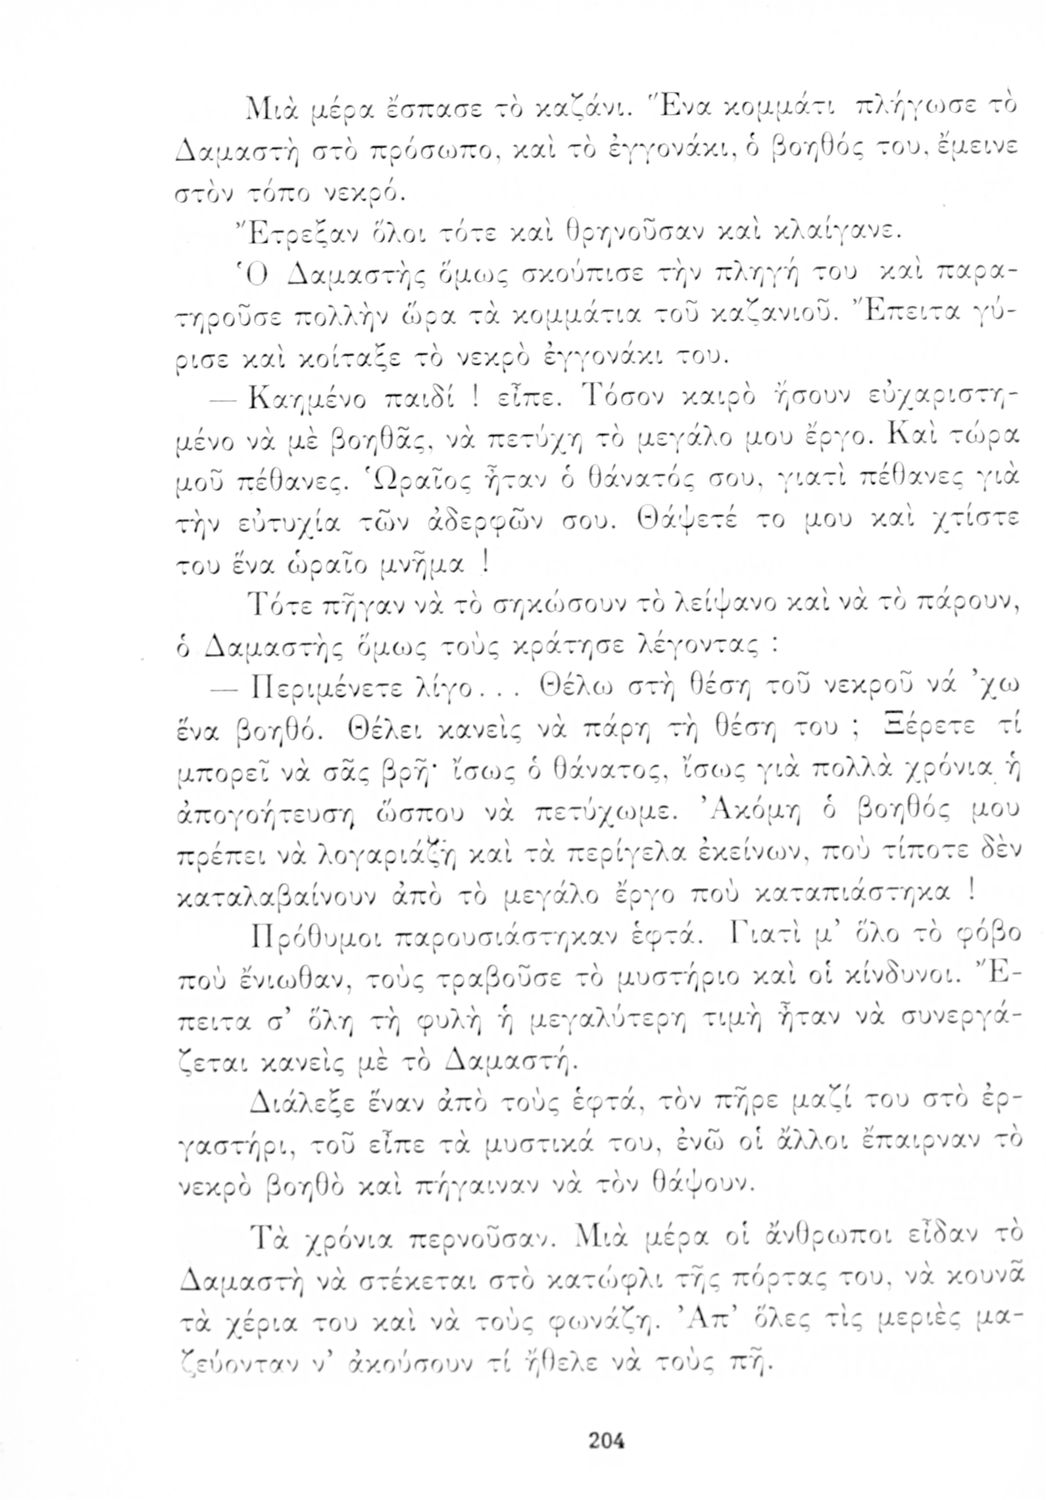 Μιὰ μέρα ἔσπασε τὸ καζάνι. Ἕνα κομμάτι πλήγωσε τὸ
Δαμαστὴ στὸ πρόσωπο, καὶ τὸ ἐγγονάκι, ὁ βοηθός του, ἔμεινε
στὸν τόπο νεκρό.
Ἔτρεξαν ὅλοι τότε καὶ θρηνοῦσαν καὶ κλαίγανε.
Ὁ Δαμαστὴς ὅμως σκούπισε τὴν πληγή του καὶ παρα-
τηροῦσε πολλὴν ὥρα τὰ κομμάτια τοῦ καζανιοῦ. Ἔπειτα γύ-
ρισε καὶ κοίταξε τὸ νεκρὸ ἐγγονάκι του.
— Καημένο παιδί ! εἶπε. Τόσον καιρὸ ἤσουν εὐχαριστη-
μένο νὰ μὲ βοηθᾶς, νὰ πετύχη τὸ μεγάλο μου ἔργο. Καὶ τώρα
μοῦ πέθανες. Ὡραῖος ἦταν ὁ θάνατός σου, γιατὶ πέθανες γιὰ
τὴν εὐτυχία τῶν ἀδερφῶν σου. Θάψετέ το μου καὶ χτίστε
του ἕνα ὡραῖο μνῆμα !
Τότε πῆγαν νὰ τὸ σηκώσουν τὸ λείψανο καὶ νὰ τὸ πάρουν,
ὁ Δαμαστὴς ὅμως τοὺς κράτησε λέγοντας :
— Περιμένετε λίγο... Θέλω στὴ θέση τοῦ νεκροῦ νά ’χω
ἕνα βοηθό. Θέλει κανεὶς νὰ πάρη τὴ θέση του ; Ξέρετε τί
μπορεῖ νὰ σᾶς βρῆ· ἴσως ὁ θάνατος, ἴσως γιὰ πολλὰ χρόνια ἡ
ἀπογοήτευση ὥσπου νὰ πετύχωμε. Ἀκόμη ὁ βοηθός μου
πρέπει νὰ λογαριάζη καὶ τὰ περίγελα ἐκείνων, ποὺ τίποτε δὲν
καταλαβαίνουν ἀπὸ τὸ μεγάλο ἔργο ποὺ καταπιάστηκα !
Πρόθυμοι παρουσιάστηκαν ἑφτά. Γιατὶ μ’ ὅλο τὸ φόβο
ποὺ ἔνιωθαν, τοὺς τραβοῦσε τὸ μυστήριο καὶ οἱ κίνδυνοι. Ἔ-
πειτα σ’ ὅλη τὴ φυλὴ ἡ μεγαλύτερη τιμὴ ἦταν νὰ συνεργά-
ζεται κανεὶς μὲ τὸ Δαμαστή.
Διάλεξε ἕναν ἀπὸ τοὺς ἑφτά, τὸν πῆρε μαζί του στὸ ἐρ-
γαστήρι, τοῦ εἶπε τὰ μυστικά του, ἐνῶ οἱ ἄλλοι ἔπαιρναν τὸ
νεκρὸ βοηθὸ καὶ πήγαιναν νὰ τὸν θάψουν.
Τὰ χρόνια περνοῦσαν. Μιὰ μέρα οἱ ἄνθρωποι εἶδαν τὸ
Δαμαστὴ νὰ στέκεται στὸ κατώφλι τῆς πόρτας του, νὰ κουνᾶ
τὰ χέρια του καὶ νὰ τοὺς φωνάζη. Ἀπ’ ὅλες τὶς μεριὲς μα-
ζεύονταν ν’ ἀκούσουν τί ἤθελε νὰ τοὺς πῆ.
204